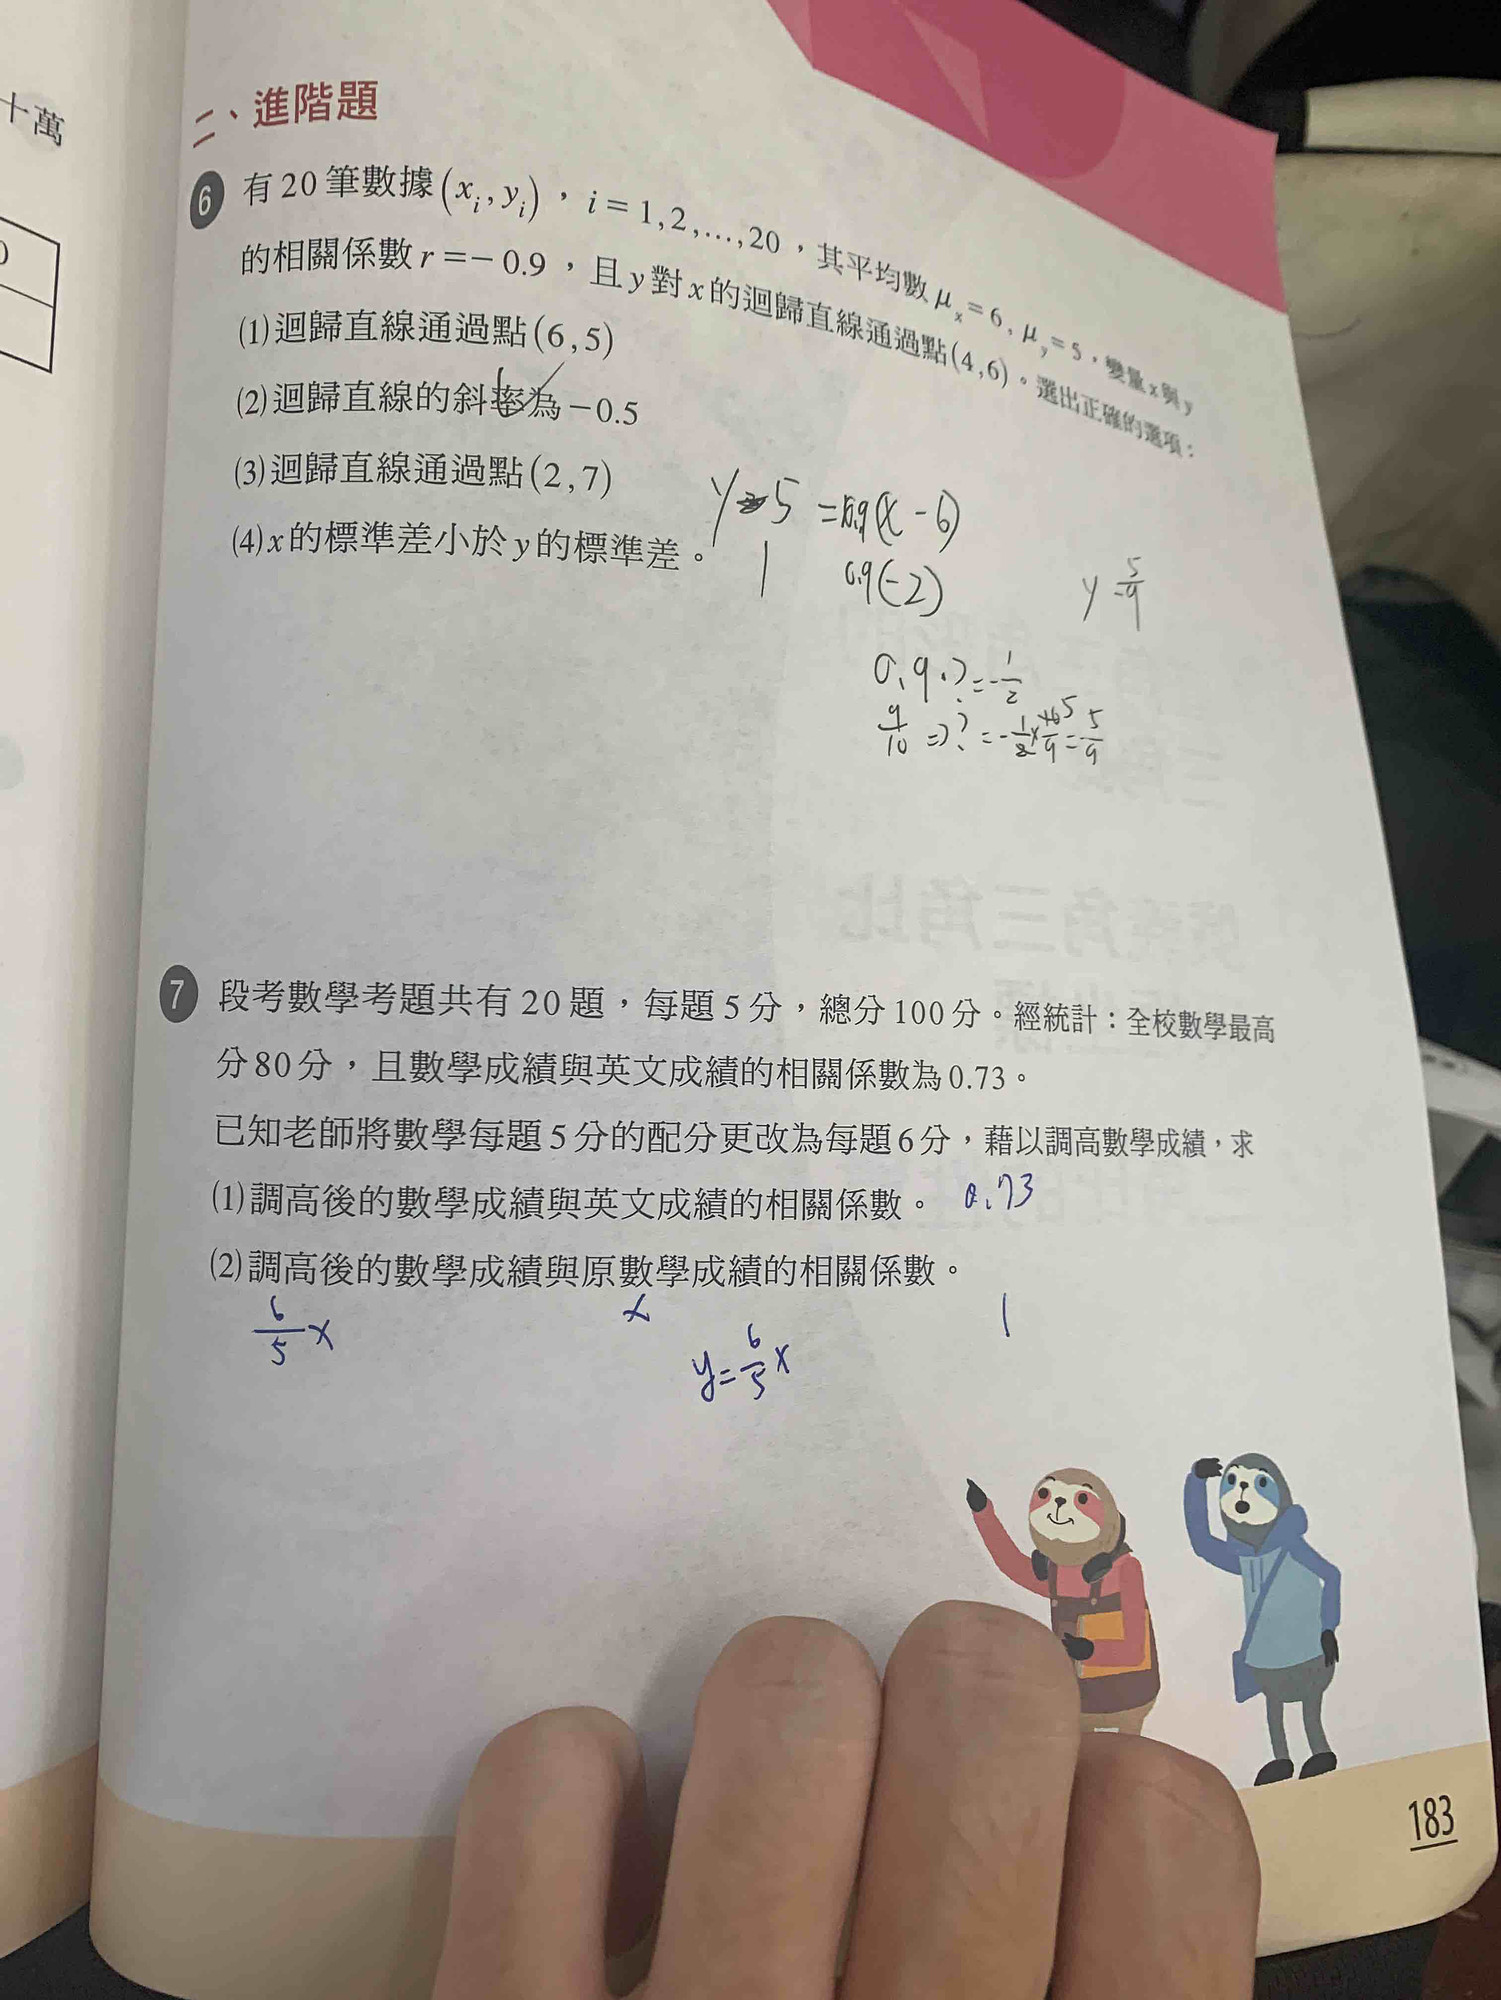 十萬
二、進階題
6 有20筆數據(xᵢ, yᵢ),i=1,2,…,20,其平均數μₓ=6,μᵧ=5,變量x與y
的相關係數r=-0.9,且y對x的迴歸直線通過點(4,6)。選出正確的選項:
(1)迴歸直線通過點(6,5)
(2)迴歸直線的斜率為-0.5
(3)迴歸直線通過點(2,7)
(4)x的標準差小於y的標準差。
y-5 = (x-6)
1 0.9(-2)
y 5/9
0.9·?=-1/2
9/10 ⇒ ?=-1/2×10/9 5=-5/9
7 段考數學考題共有20題,每題5分,總分100分。經統計:全校數學最高
分80分,且數學成績與英文成績的相關係數為0.73。
已知老師將數學每題5分的配分更改為每題6分,藉以調高數學成績,求
(1)調高後的數學成績與英文成績的相關係數。 0.73
(2)調高後的數學成績與原數學成績的相關係數。
6/5 x x 1
y=6/5 x
183